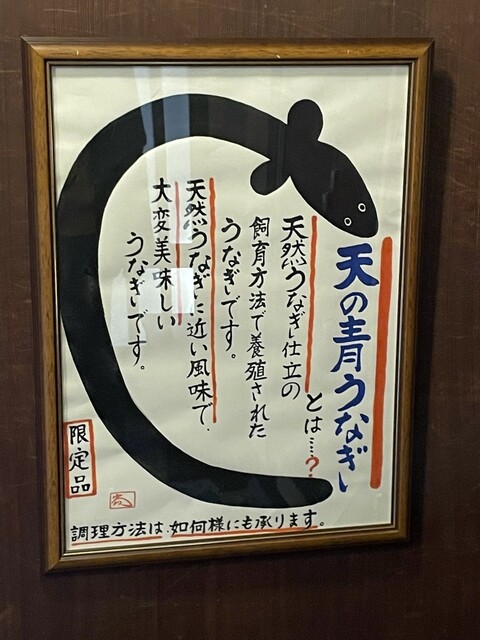 天の青うなぎ
とは……?
天然うなぎ仕立の
飼育方法で養殖された
うなぎです。
天然うなぎに近い風味で.
大変美味しい
うなぎです。
限定品
調理方法は.如何様にも承ります。